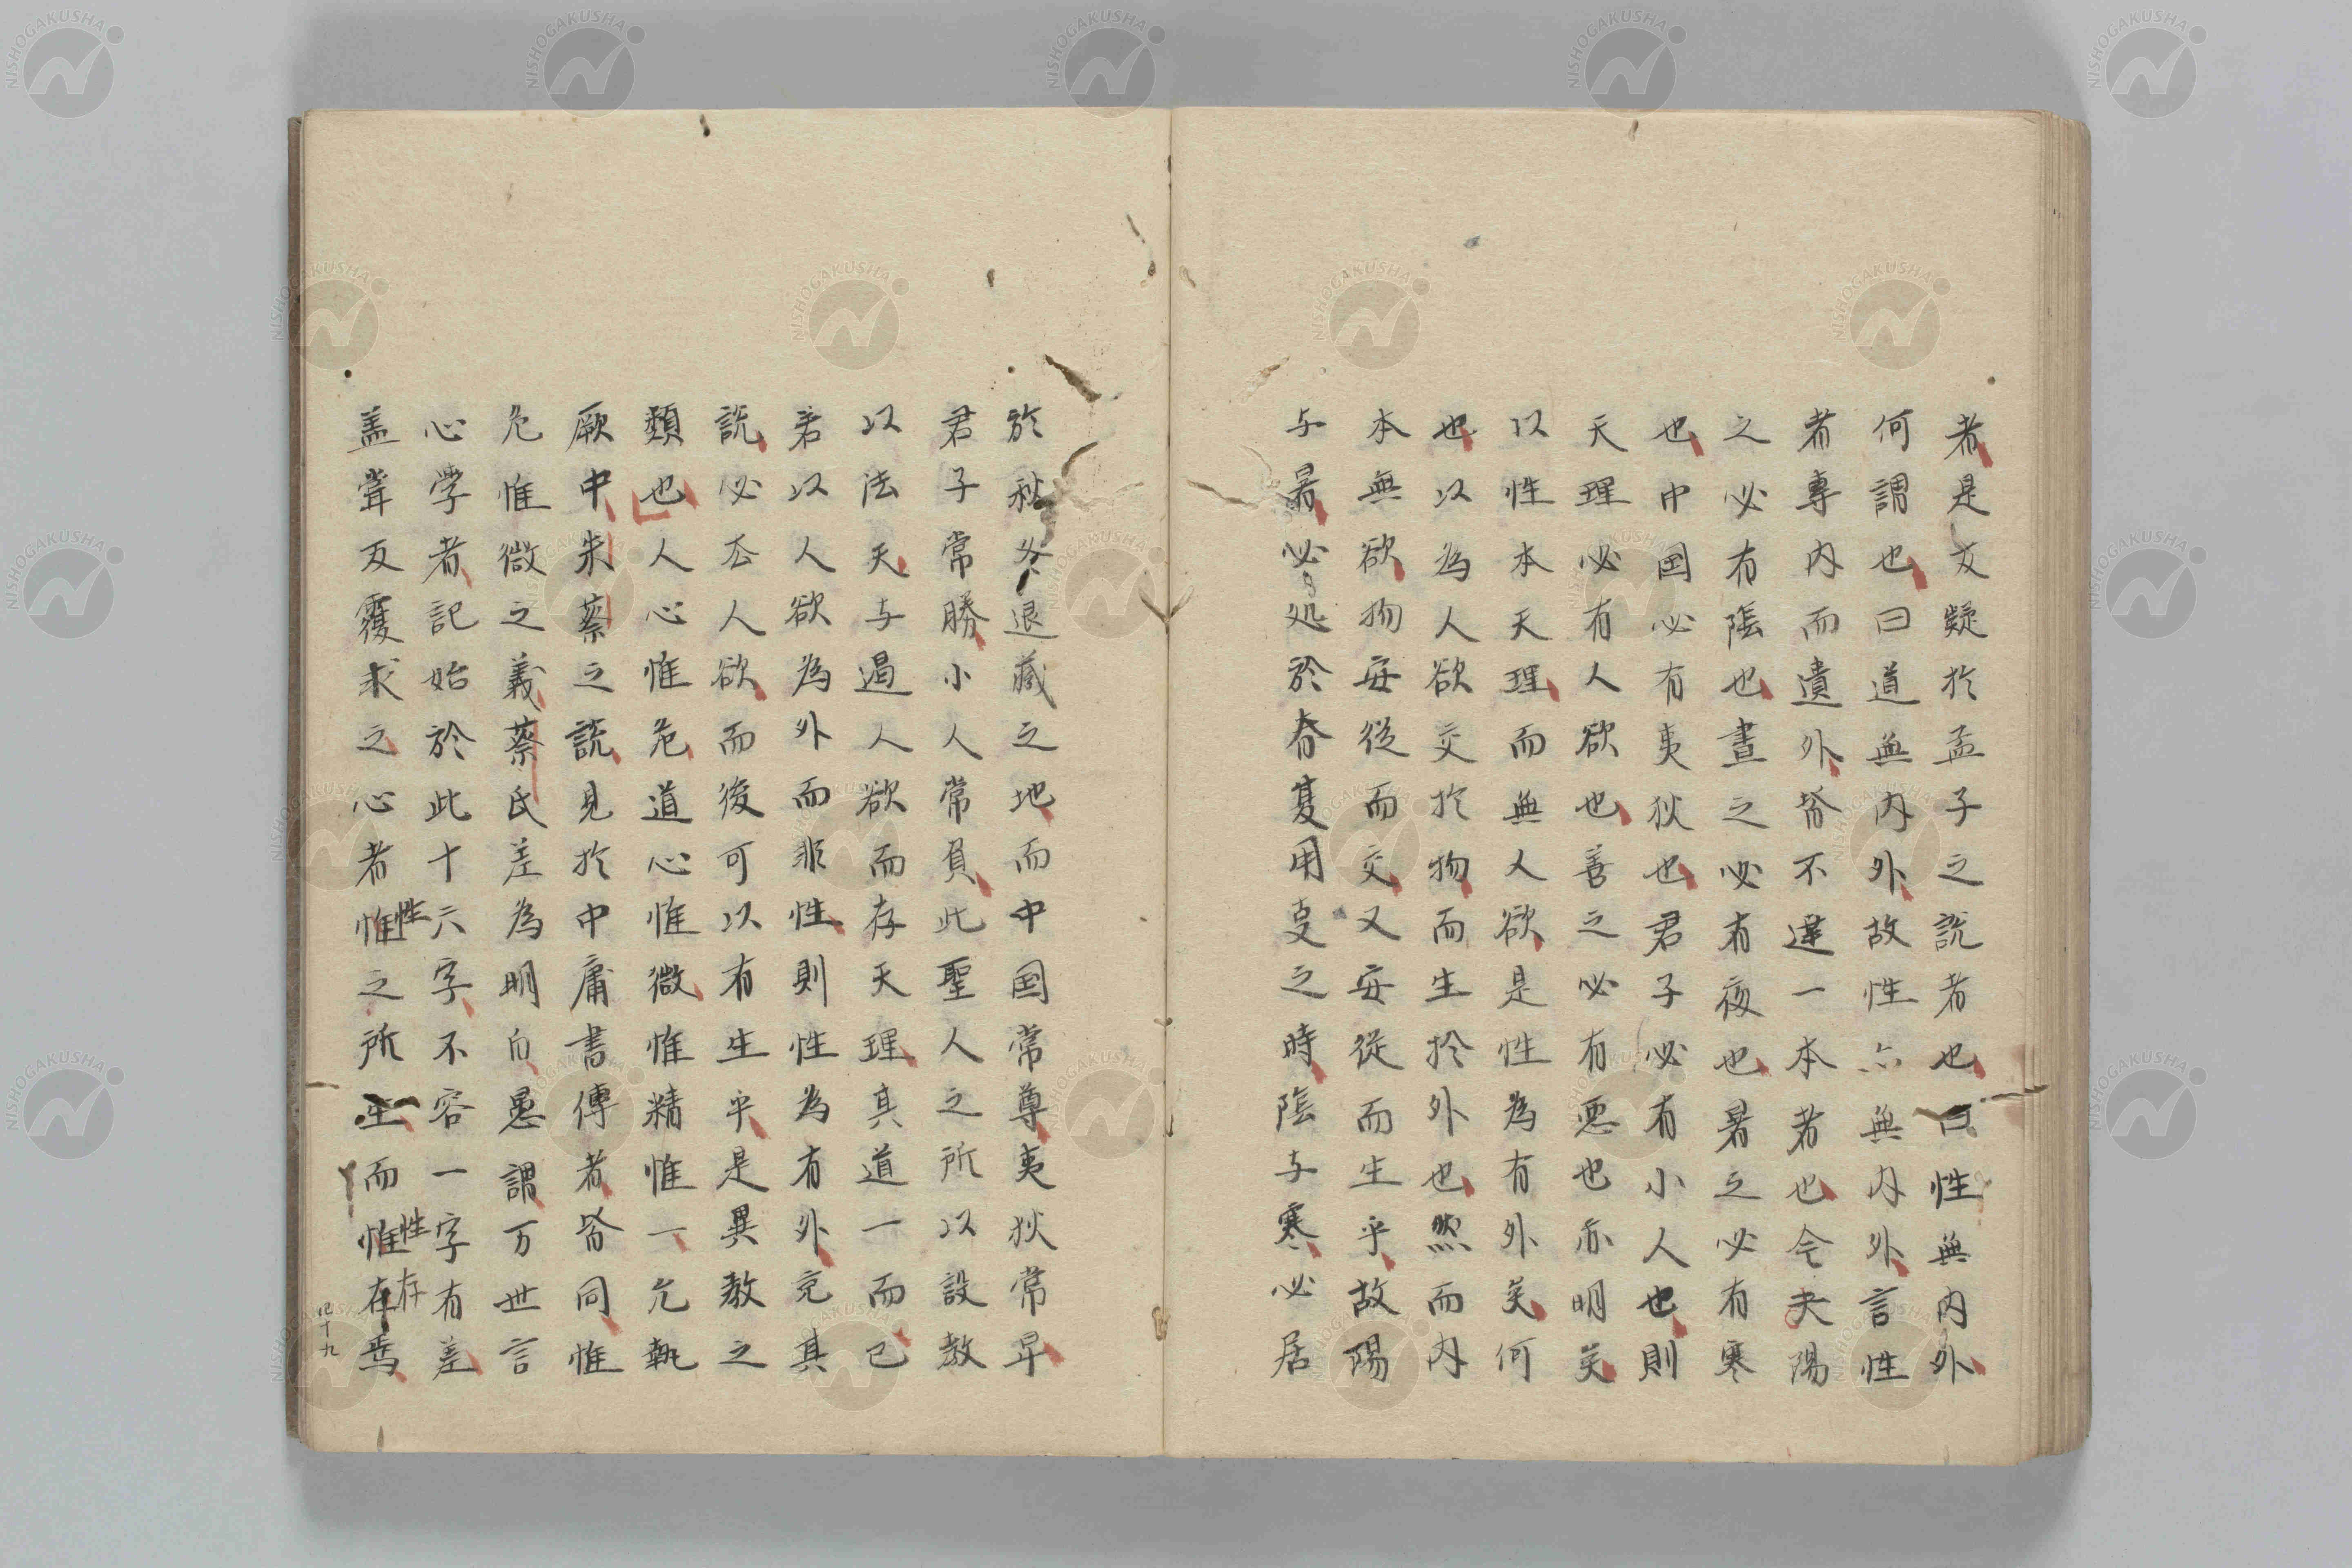 者是友疑於孟子之説者也曰性無内外
何謂也曰道無内外故性亦無内外言性
者專内而遺外皆不達一本者也今夫陽
之必有陰也晝之必有夜也暑之必有寒
也中国必有夷狄也君子必有小人也則
天理必有人欲也善之必有悪也亦明矣
以性本天理而無人欲是性為有外矣何
也以為人欲交於物而生於外也然而内
本無欲物安従而交又安従而生乎故陽
与暑必処於春夏用㕝之時陰与寒必居
於秋冬退蔵之地而中国常尊夷狄常卑
君子常勝小人常負此聖人之所以設教
以法天与遏人欲而存天理其道一而已
若以人欲為外而非性則性為有外充其
説必去人欲而後可以有生乎是異教之
類也人心惟危道心惟微惟精惟一允執
厥中朱蔡之説見於中庸書傳者皆同惟
危惟微之義蔡氏差為明白愚謂万世言
心学者記始於此十六字不容一字有差
盖嘗反覆求之心者惟之所生而惟存焉
性
性存
四十九
NISHOGAKUSHA